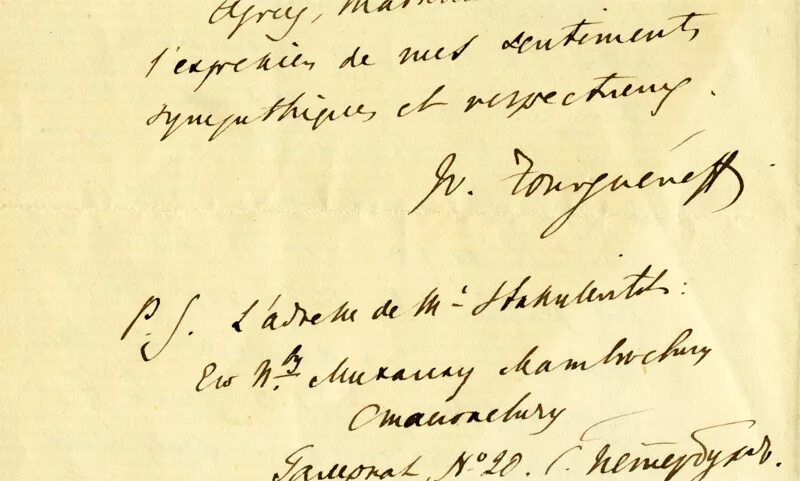 Agréez, Mada
l'expression de mes sentiments
sympathiques et respectueux.
Iv. Tourguéneff
P. S. L'adresse de Mr Stakulevitch:
Его Пр. Михаилу Матвеевичу
Стасюлевичу
Галерная, № 20. С. Петербургъ.